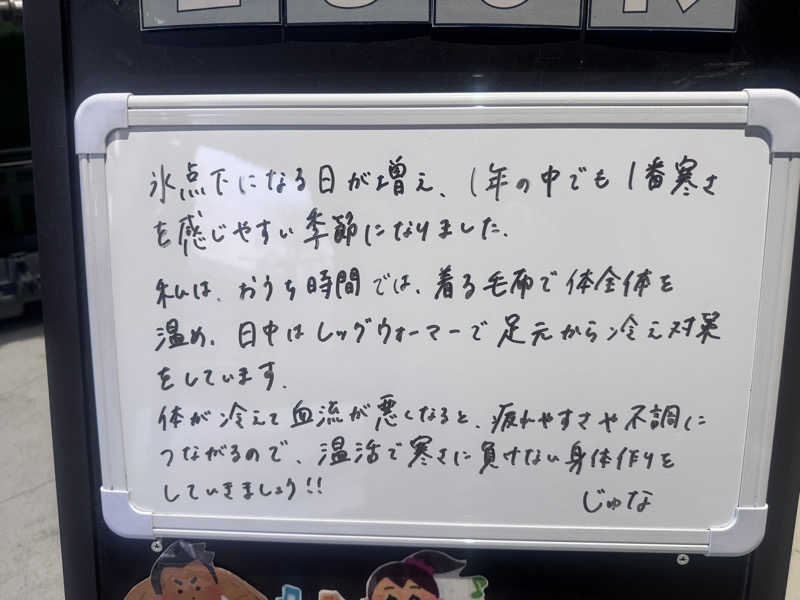 氷点下になる日が増え、1年の中でも1番寒さ
を感じやすい季節になりました。
私は、おうち時間では、着る毛布で体全体を
温め、日中はレッグウォーマーで足元から冷え対策
をしています。
体が冷えて血流が悪くなると、疲れやすさや不調に
つながるので、温活で寒さに負けない身体作りを
していきましょう!!
じゅな